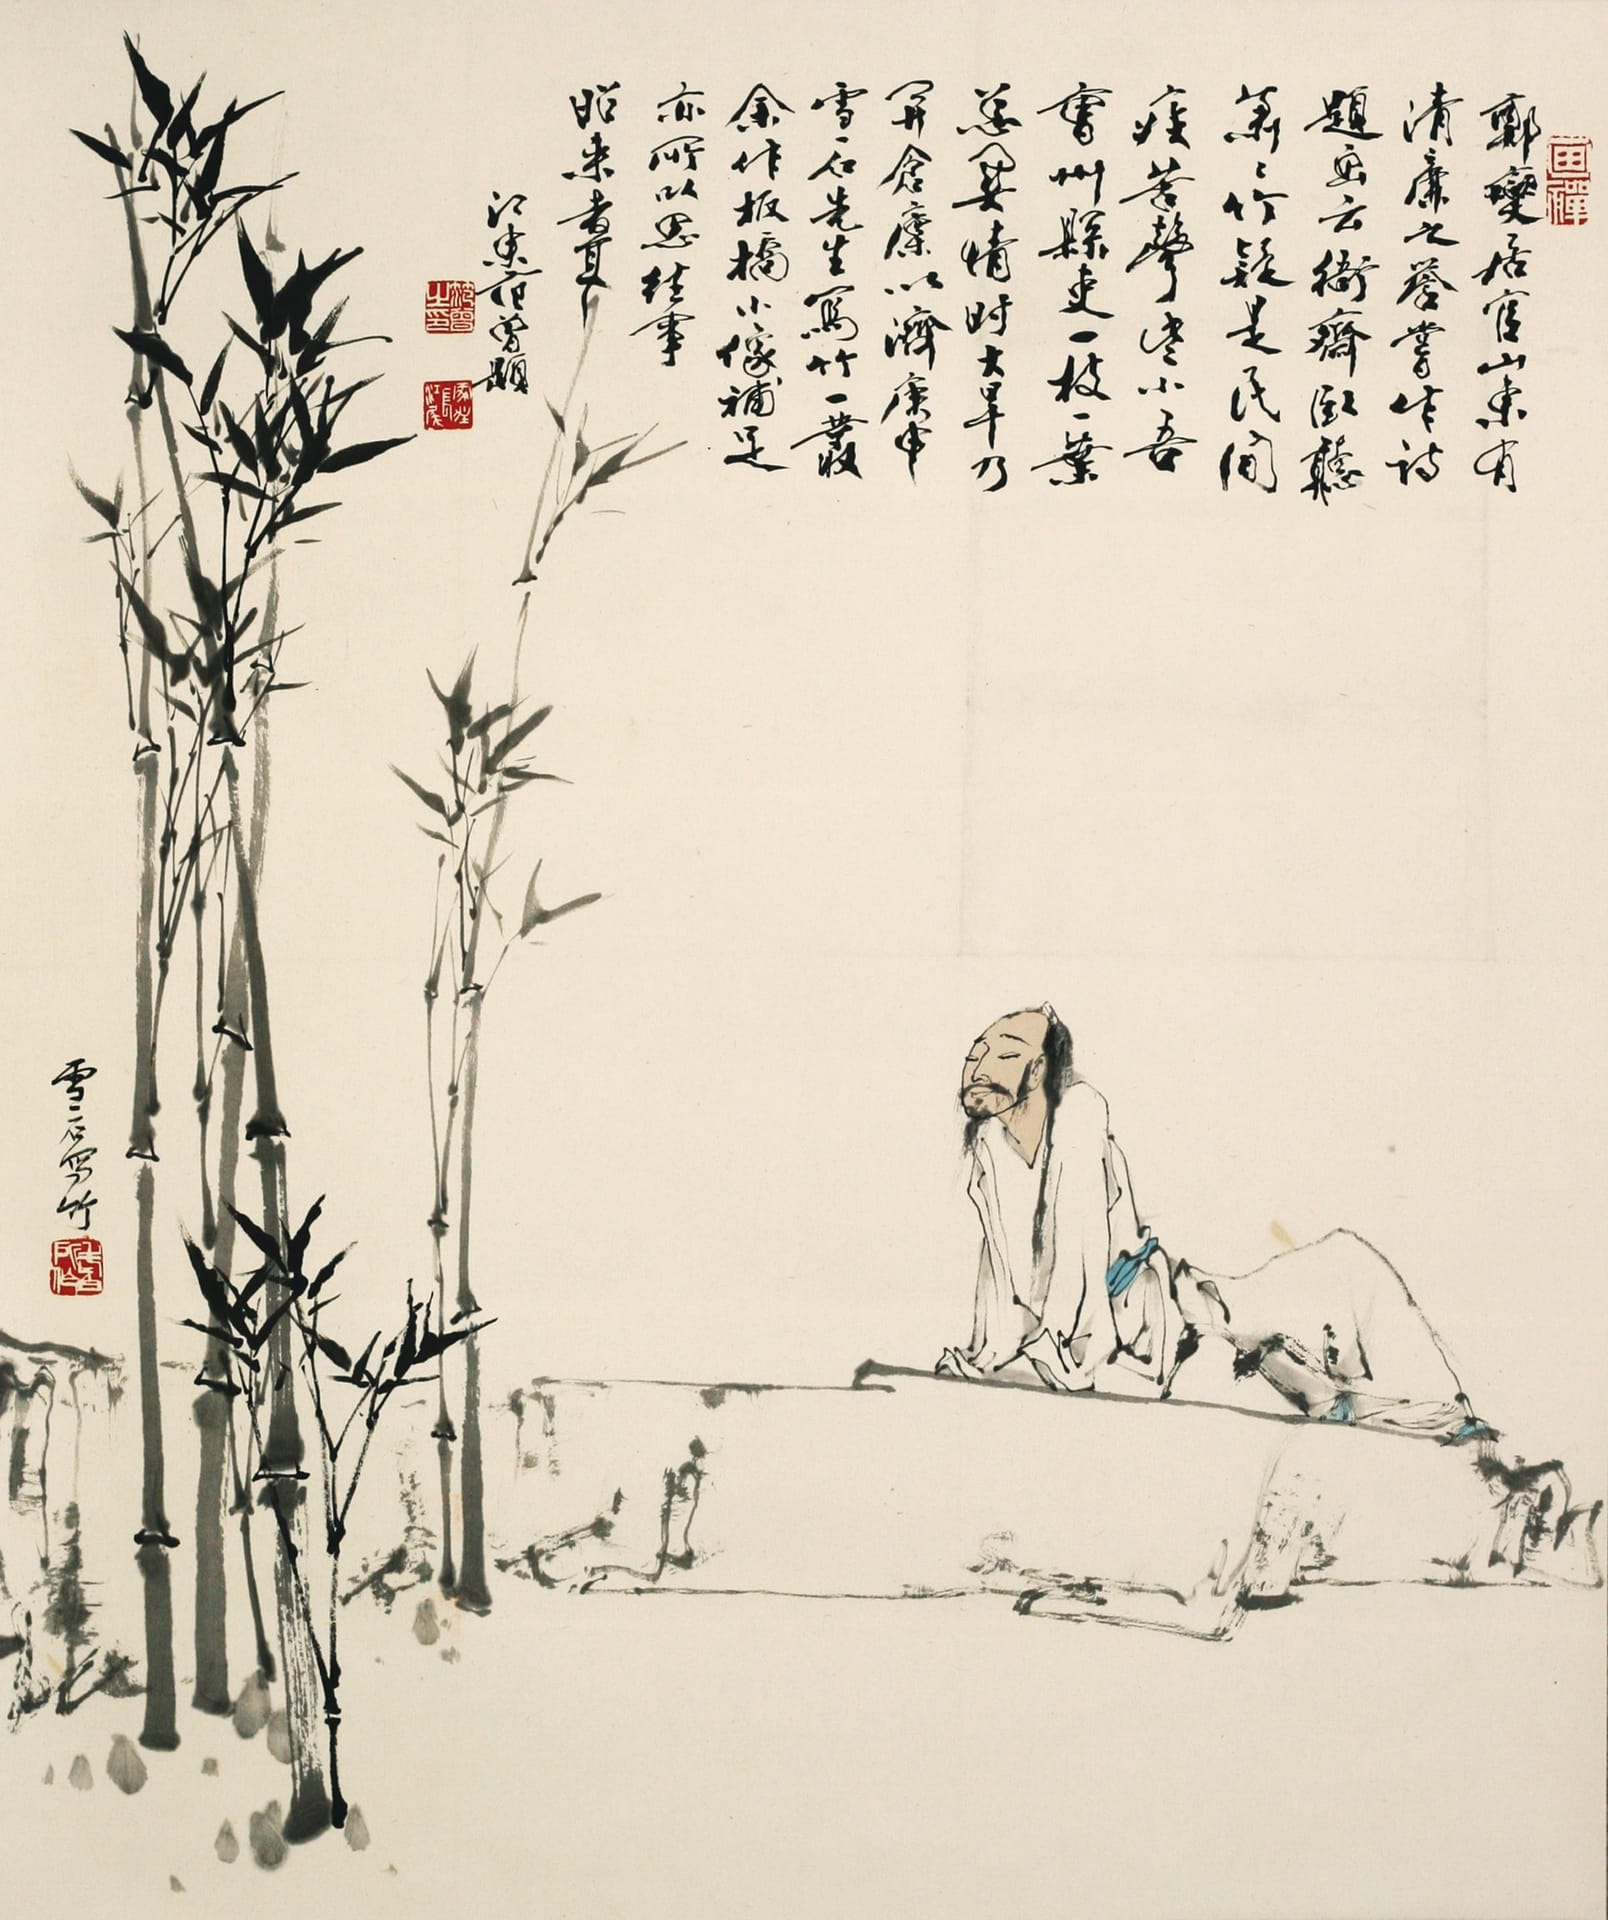 鄭燮居官山東有
清廉之譽嘗作詩
題畫云衙齋臥聽
蕭〻竹疑是民間
疾苦聲些小吾
曹州縣吏一枝一葉
總關情時大旱乃
開倉廩以濟庚申
雪石先生寫竹一叢
余作板橋小像補足
亦所以思往事
昭來者耳
江東范曾題
范曾之印
雪石寫竹